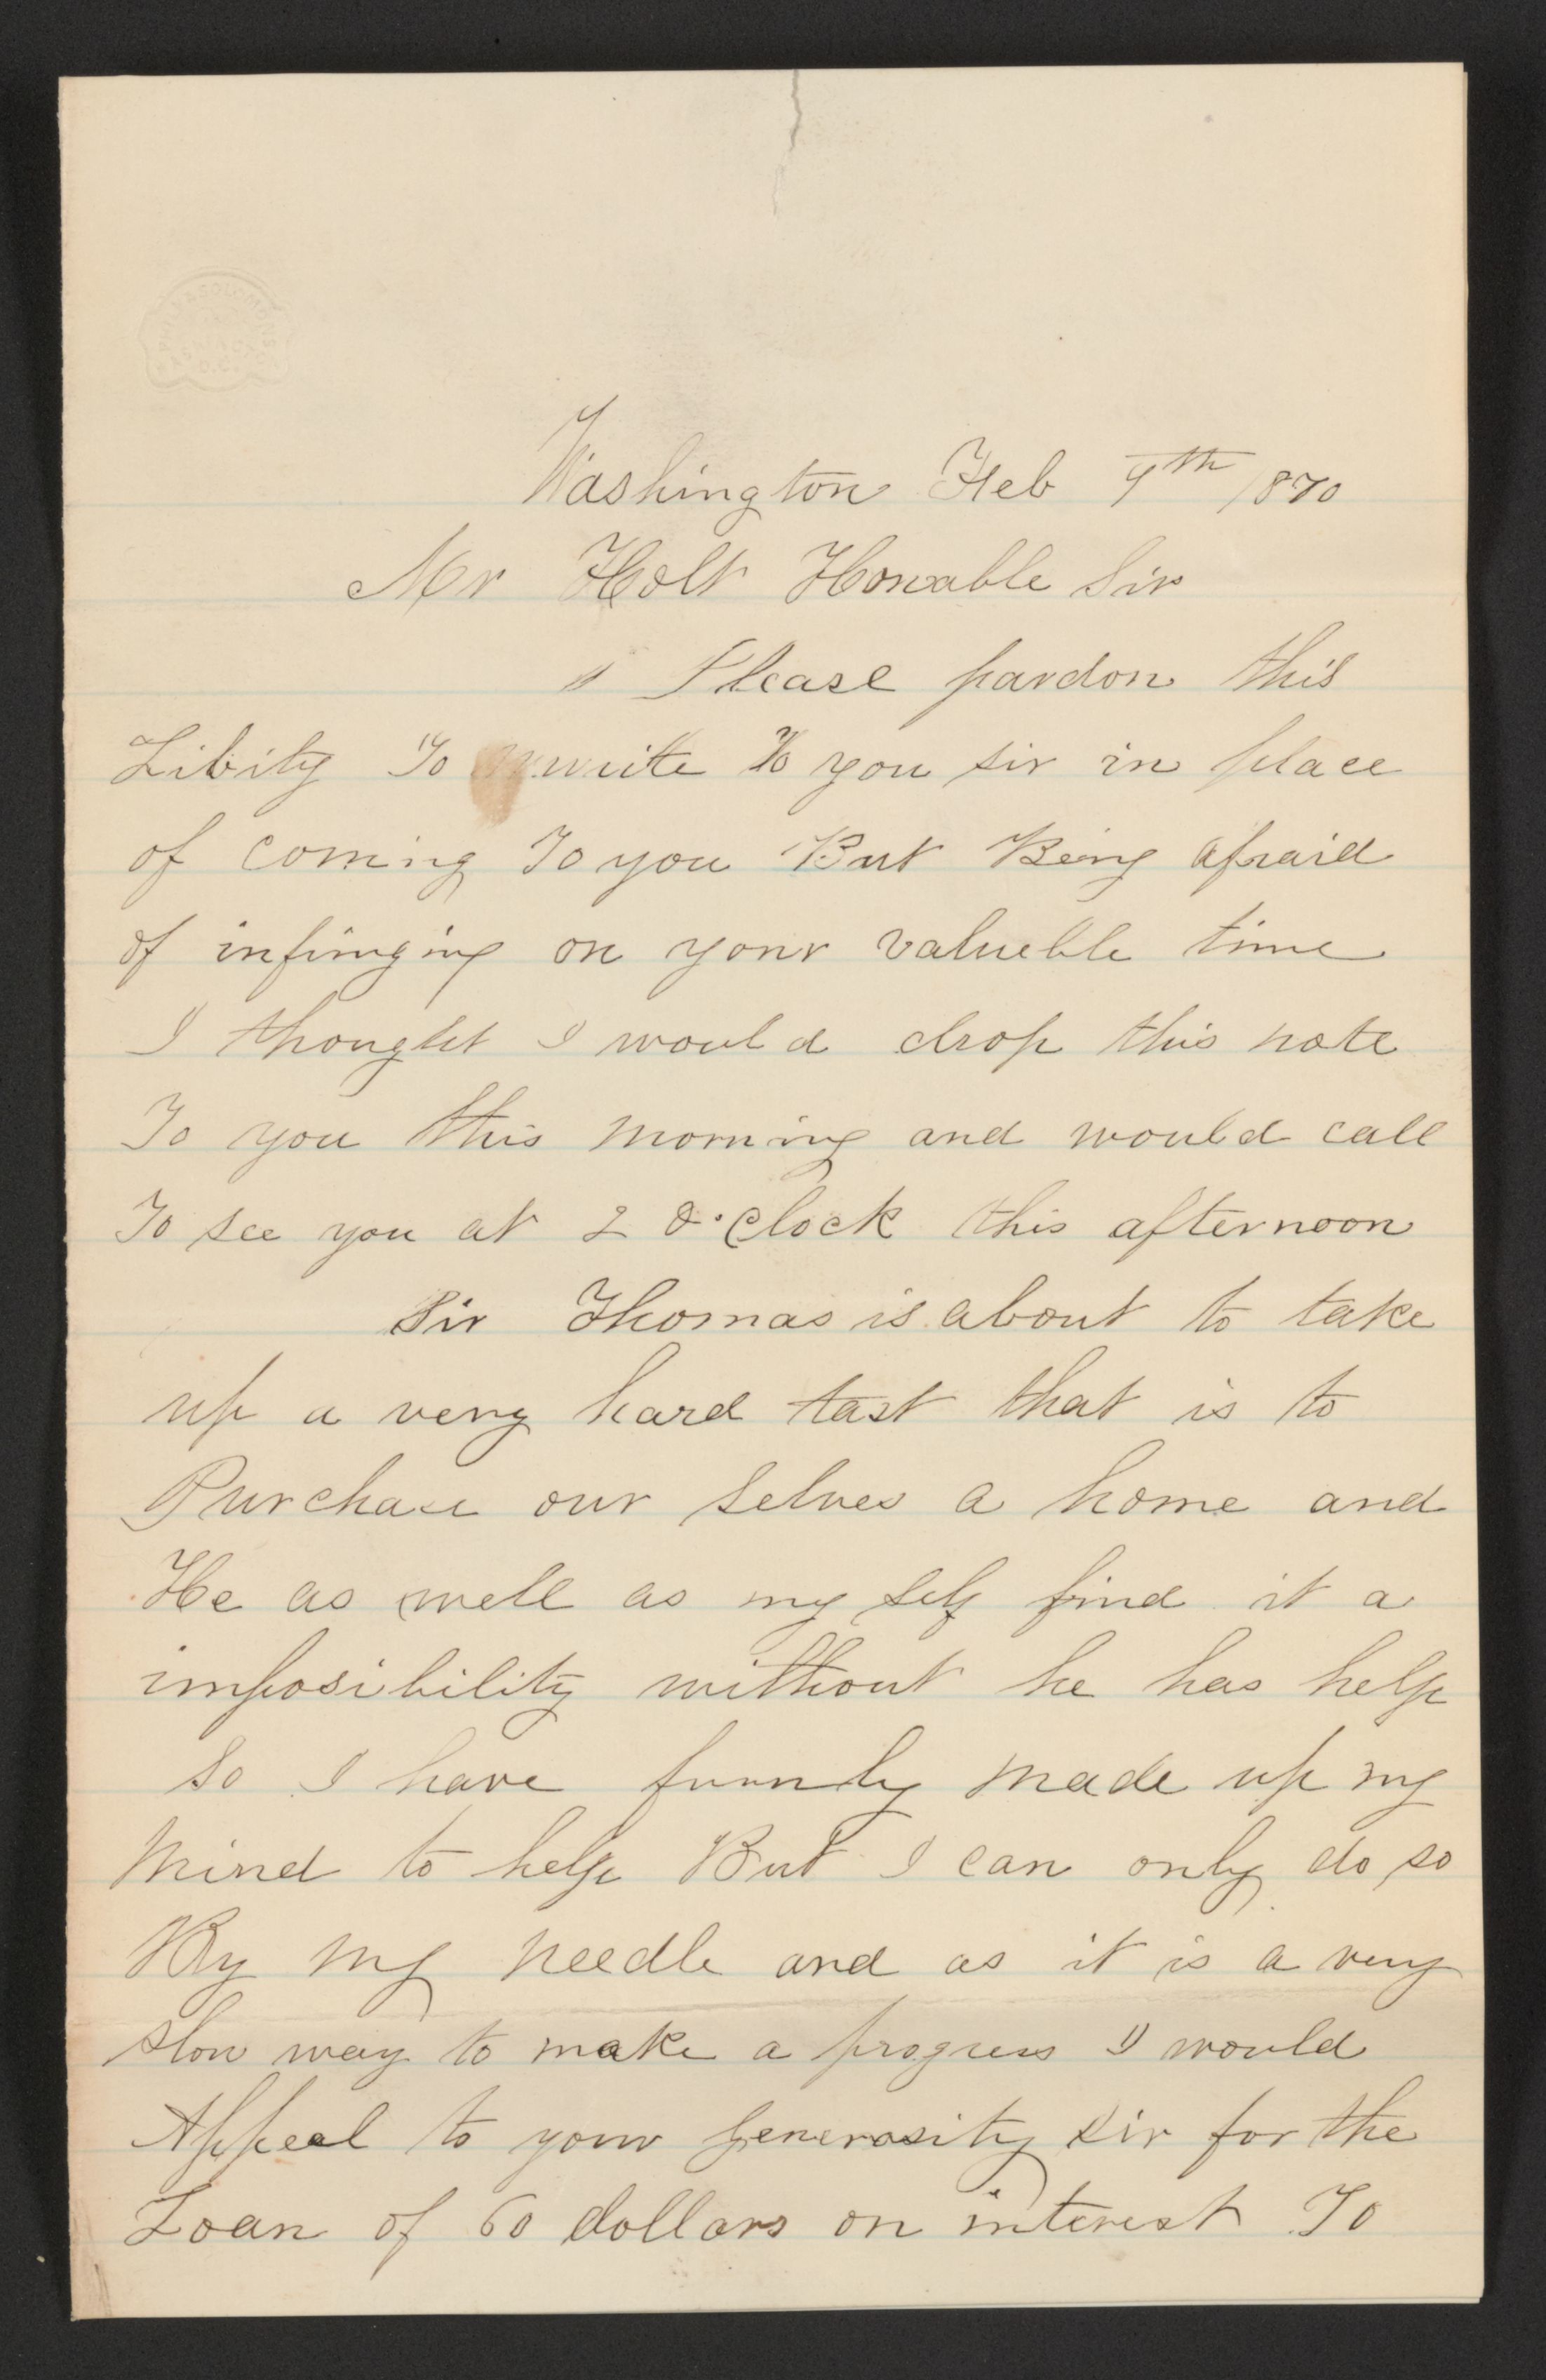 Washington Feb 9th 1870
Mr Holt Honable Sir
Please pardon this
Libity To write to you sir in place
of coming To you But Being afraid
of infringing on your valueble time
I thought I would drop this note
To you this morning and would call
To see you at 2 O.Clock this afternoon
Sir Thomas is about to take
up a very hard tast that is to
Purchase our selves a home and
He as well as my self find it a
imposibility without he has help
So I have firmly made up my
Mind to help But I can only do so
By my needle and as it is a very
slow way to make a progress I would
Appeal to your generosity Sir for the
Loan of 60 dollars on interest To